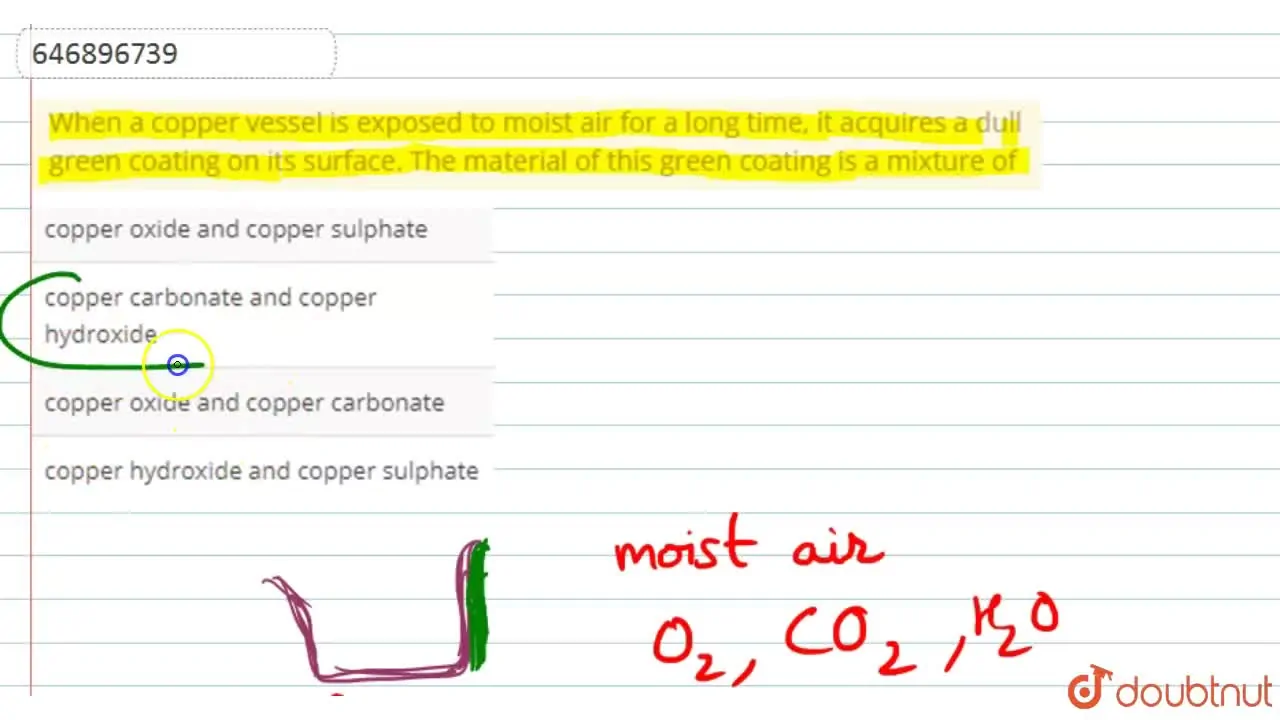 646896739
When a copper vessel is exposed to moist air for a long time, it acquires a dull
green coating on its surface. The material of this green coating is a mixture of
copper oxide and copper sulphate
copper carbonate and copper
hydroxide
copper oxide and copper carbonate
copper hydroxide and copper sulphate
moist air
O2, CO2, H2O
doubtnut